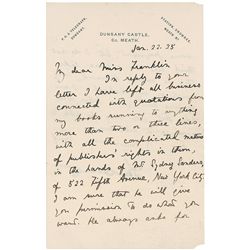 DUNSANY CASTLE,
CO. MEATH.
Jan. 22. 25
My dear Miss Franklin
In reply to your
letter I have left all business
connected with quotations from
my books running to anything
more than two or three lines,
with all the complicated matter
of publishers' rights in them,
in the hands of Mr Sydney Sanders
of 522 Fifth Avenue, New York City.
I am sure that he will give
you permission to do what you
want. He always asks for